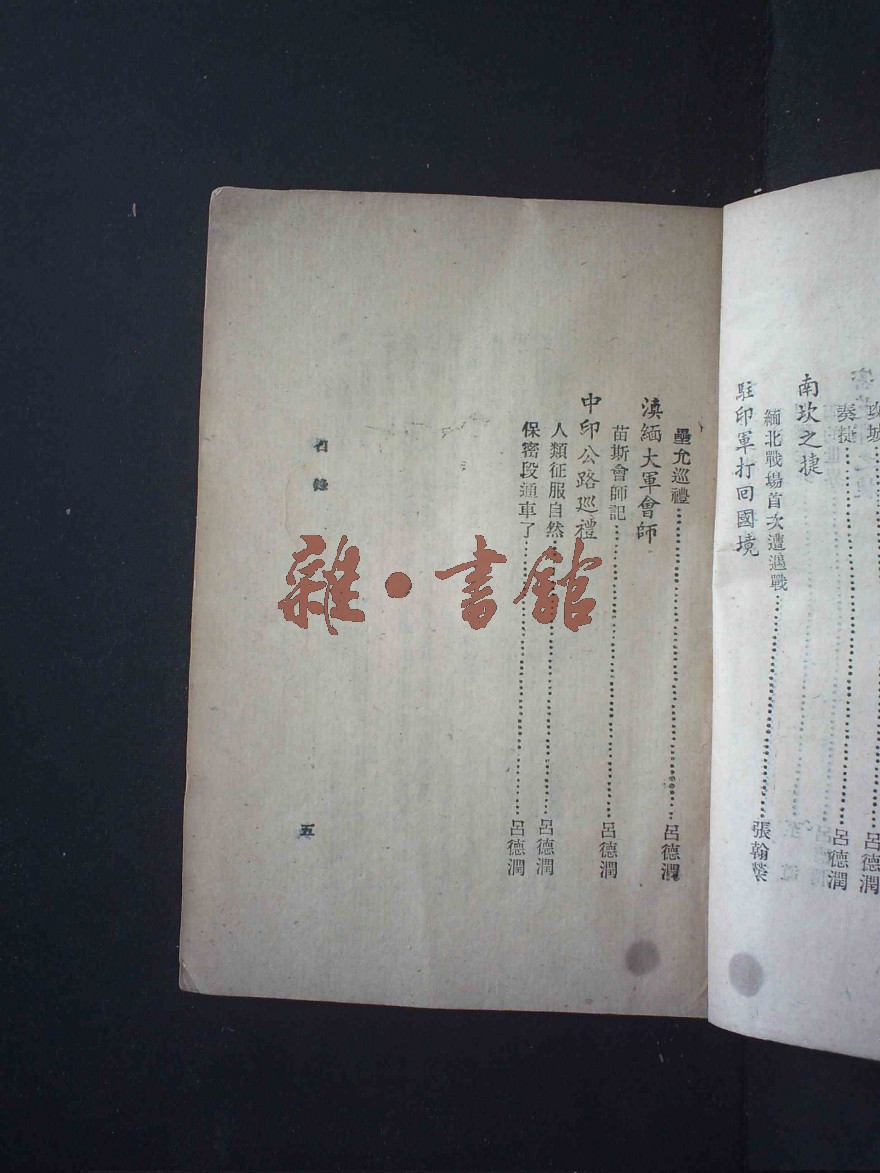 攻城…………呂德潤
奏捷…………呂德潤
南坎之捷
緬北戰場首次遭遇戰…………張翰棻
駐印軍打回國境
壘允巡禮…………呂德潤
滇緬大軍會師
苗斯會師記…………呂德潤
中印公路巡禮
人類征服自然…………呂德潤
保密段通車了…………呂德潤
目錄
五
雜·書館